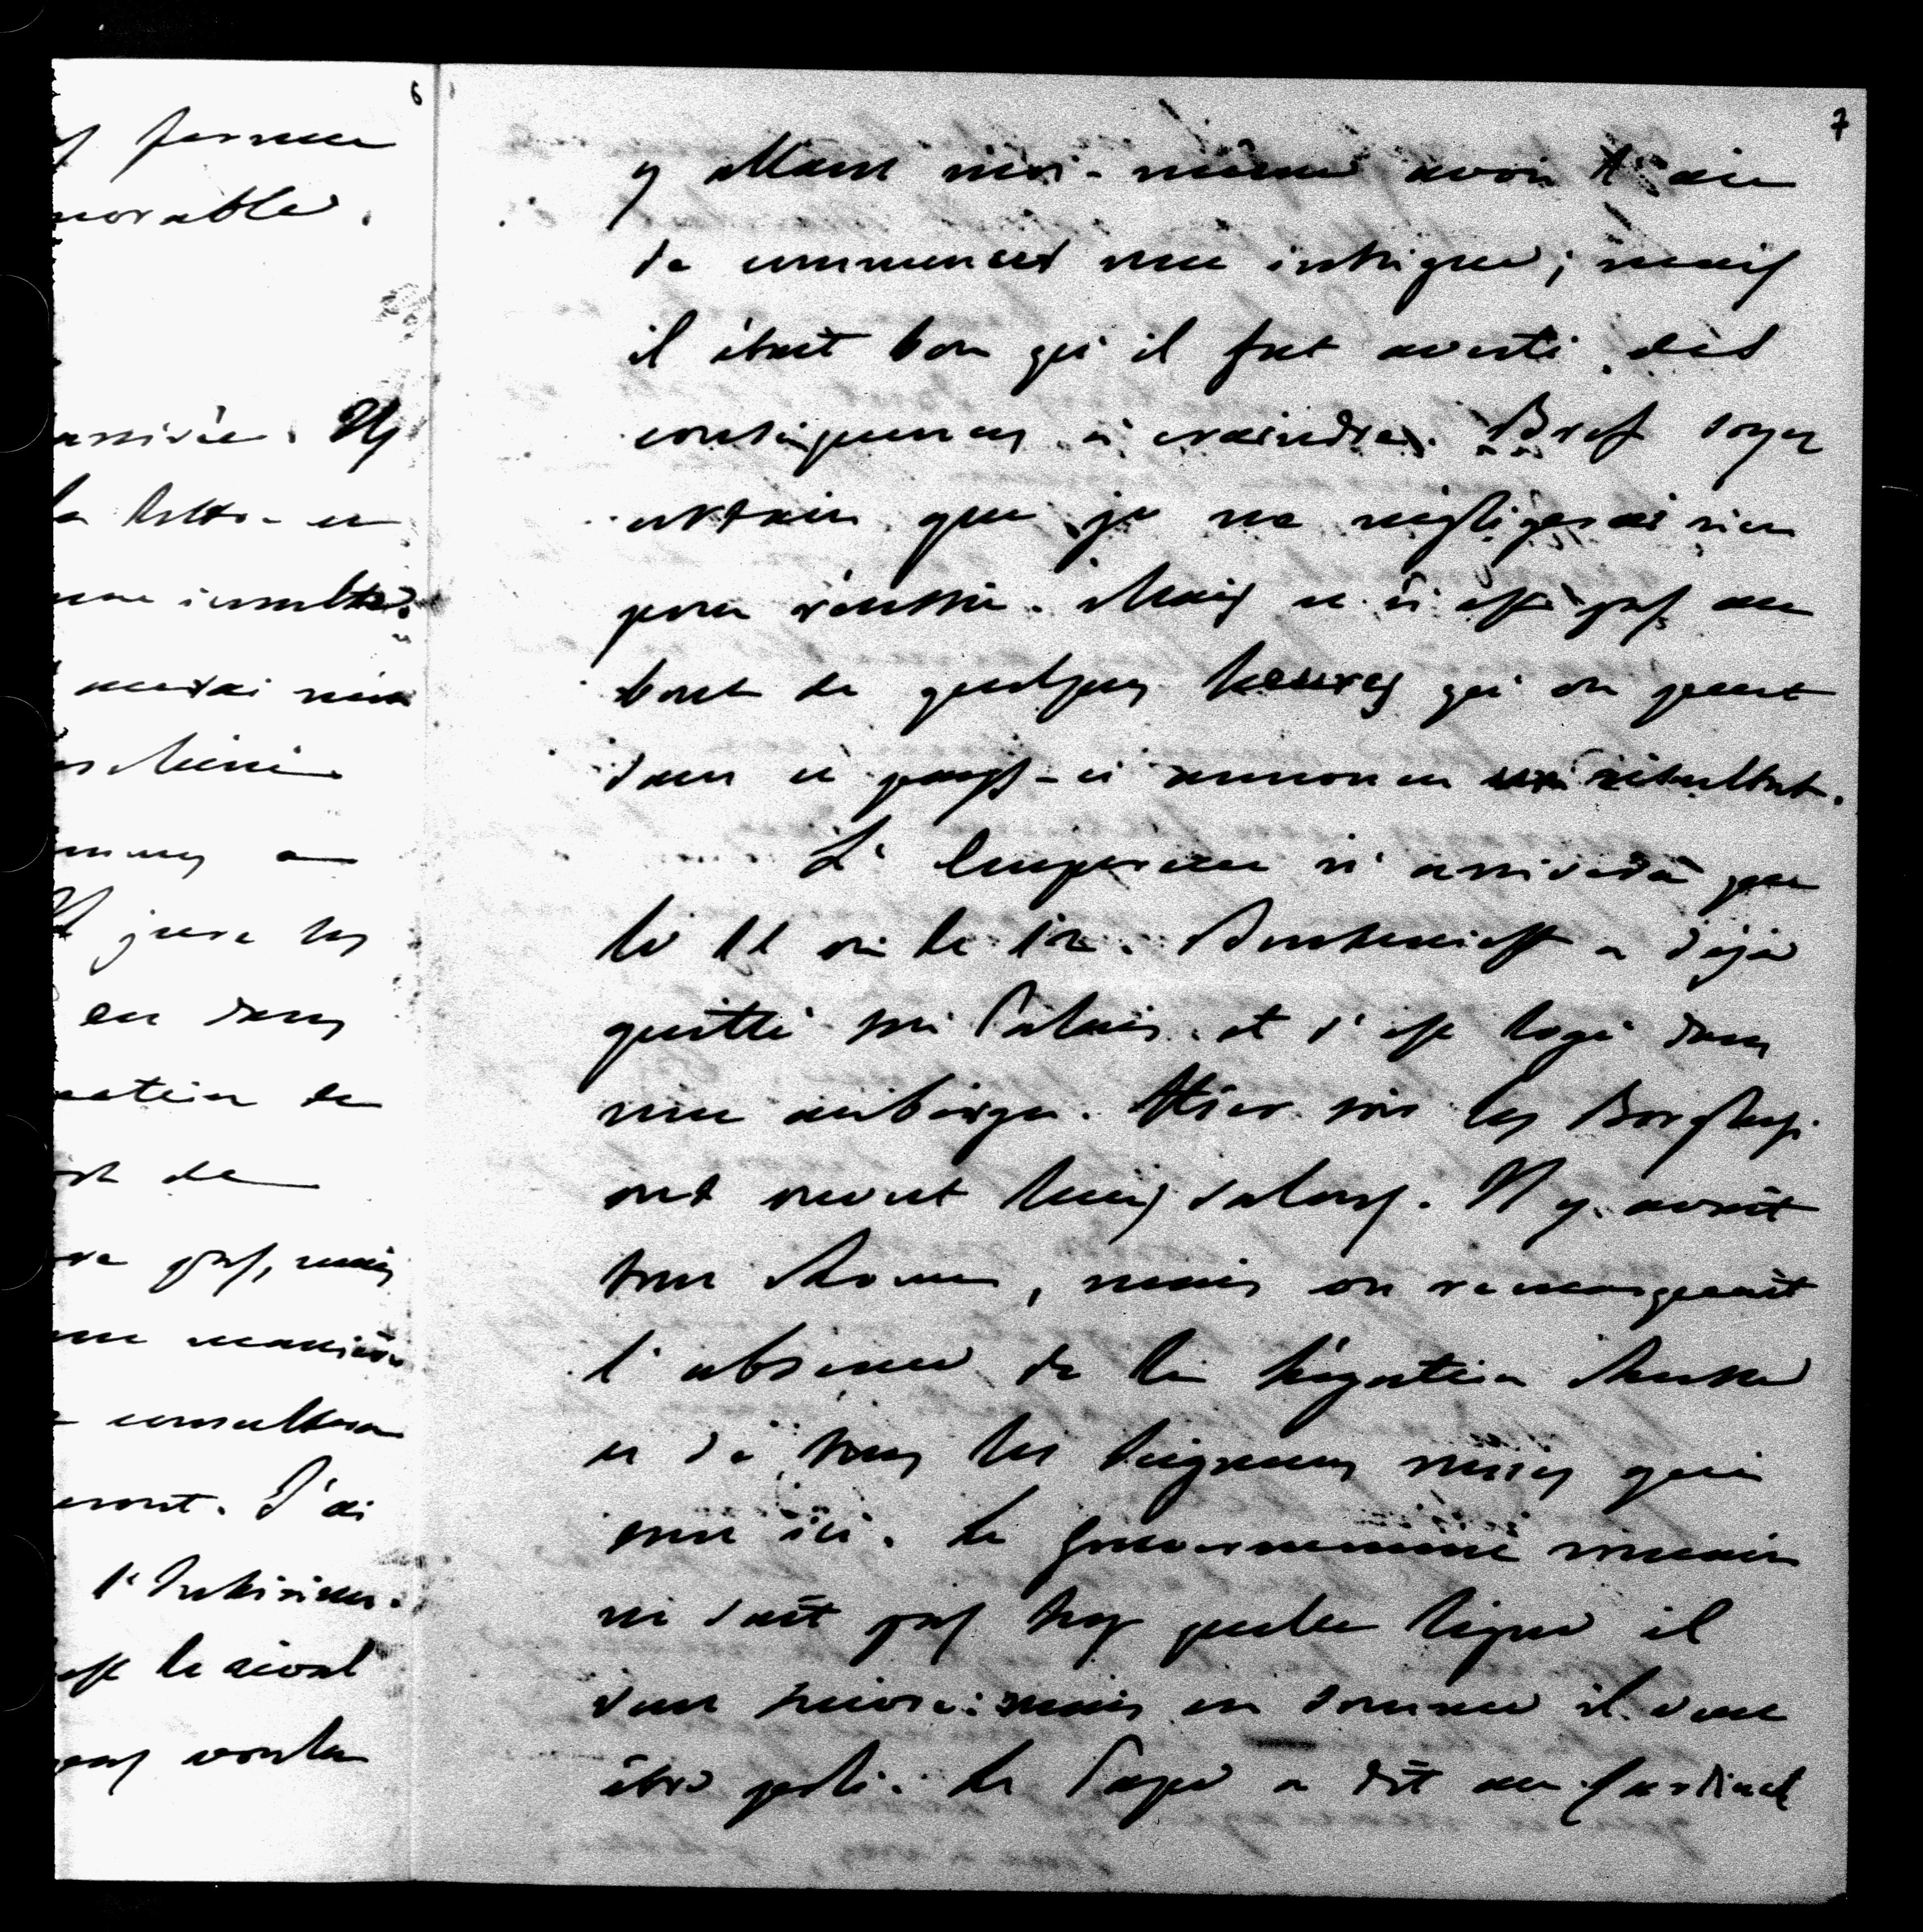 6
s femme
norable.
arrivée. Ils
la lettre en
une insulte.
aurai rien
a
Il jure les
en dans
de
de
pas, mais
une manière
consultera
eront. J'ai
est le seul
pas voulu
7
y allant moi-même avoir l'air
de commencer une intrigue ; mais
il était bon qu'il fut averti des
conséquences à craindre. Bref soyez
certain que je ne négligerai rien
pour réussir. Mais ce n'est pas au
bout de quelques heures qu'on peut
dans ce pays-ci annoncer un résultat.
L'Empereur n'arrivera que
le 11 ou le 12. a déjà
quitté son Palais et s'est logé dans
une auberge. Hier soir les Borghese
ont ouvert leurs salons. Il y avait
tout Rome, mais on remarquait
l'absence de la légation Russe
et de tous les seigneurs russes qui
sont ici. Le gouvernement romain
ne sait pas trop quelle ligne il
doit suivre : mais en somme il veut
être poli. Le Pape a dit au Cardinal